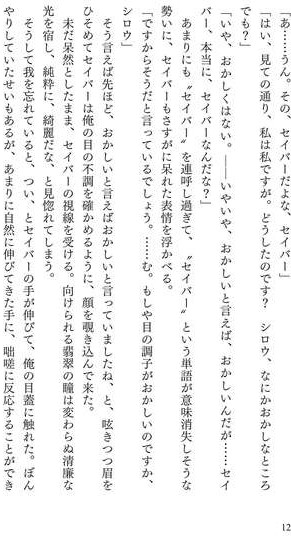 「あ……うん。その、セイバーだよな、セイバー」
「はい、見ての通り、私は私ですが。どうしたのです？　シロウ、なにかおかしなところ
でも？」
「いや、おかしくはない。――いやいや、おかしいと言えば、おかしいんだが……セイ
バー、本当に、セイバーなんだな？」
　あまりにも〝セイバー〟を連呼し過ぎて、〝セイバー〟という単語が意味消失しそうな
勢いに、セイバーもさすがに呆れた表情を浮かべる。
「ですからそうだと言っているでしょう。……む。もしや目の調子がおかしいのですか、
シロウ」
　そう言えば先ほど、おかしいと言えばおかしいと言っていましたね、と、呟きつつ眉を
ひそめてセイバーは俺の目の不調を確かめるように、顔を覗き込んで来た。
　未だ呆然としたまま、セイバーの視線を受ける。向けられる翡翠の瞳は変わらぬ清廉な
光を宿し、純粋に、綺麗だな、と見惚れてしまう。
　そうして我を忘れていると、つい、とセイバーの手が伸びて、俺の目蓋に触れた。ぼん
やりしていたせいもあるが、あまりに自然に伸びてきた手に、咄嗟に反応することができ
12